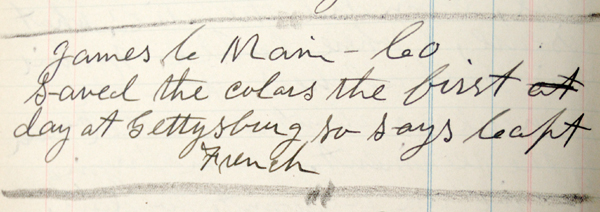 James C Main - Co
saved the colors the first at
day at Gettysburg so says Capt
French